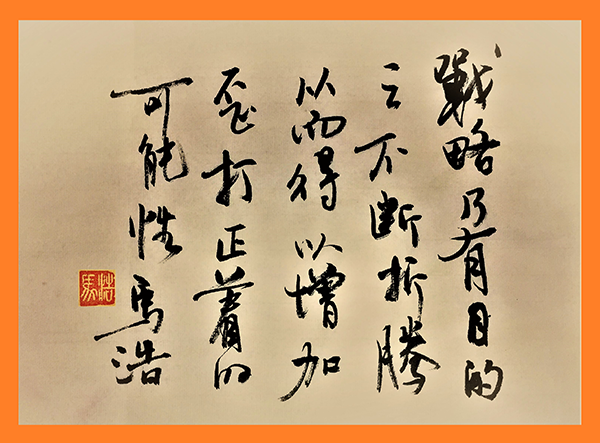 戰略乃有目的
之不断折腾
从而得以增加
歪打正着的
可能性 馬浩
馬浩